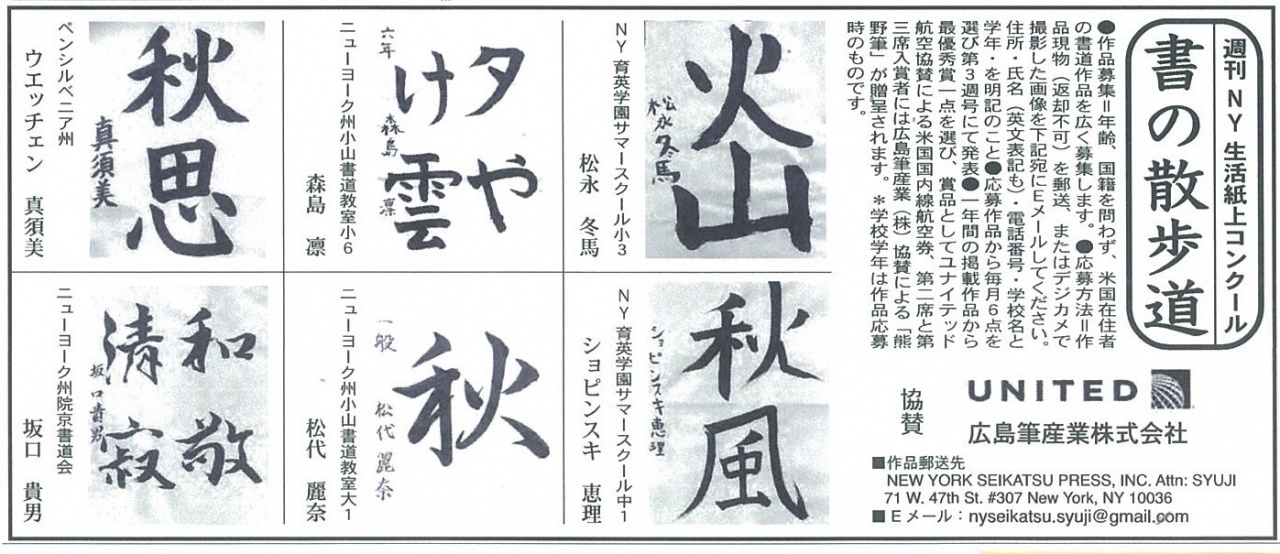 週刊NY生活紙上コンクール
書の散歩道
●作品募集＝年齢、国籍を問わず、米国在住者
の書道作品を広く募集します。●応募方法＝作
品現物（返却不可）を郵送、またはデジカメで
撮影した画像を下記宛にEメールしてください。
住所・氏名（英文表記も）・電話番号・学校名と
学年・を明記のこと●応募作品から毎月6点を
選び第3週号にて発表●一年間の掲載作品から
最優秀賞一点を選び、賞品としてユナイテッド
航空協賛による米国国内線航空券、第二席と第
三席入賞者には広島筆産業（株）協賛による「熊
野筆」が贈呈されます。＊学校学年は作品応募
時のものです。
協賛
UNITED
広島筆産業株式会社
■作品郵送先
NEW YORK SEIKATSU PRESS, INC. Attn: SYUJI
71 W. 47th St. #307 New York, NY 10036
■Eメール：nyseikatsu.syuji@gmail.com
火山
松永冬馬
NY育英学園サマースクール小3
松永 冬馬
夕や
け雲
六年 森島 凛
ニューヨーク州小山書道教室小6
森島 凛
秋思
真須美
ペンシルベニア州
ウエッチェン 真須美
秋風
ショピンスキ恵理
NY育英学園サマースクール中1
ショピンスキ 恵理
秋
一般 松代麗奈
ニューヨーク州小山書道教室大1
松代 麗奈
和敬
清寂
坂口貴男
ニューヨーク州院京書道会
坂口 貴男